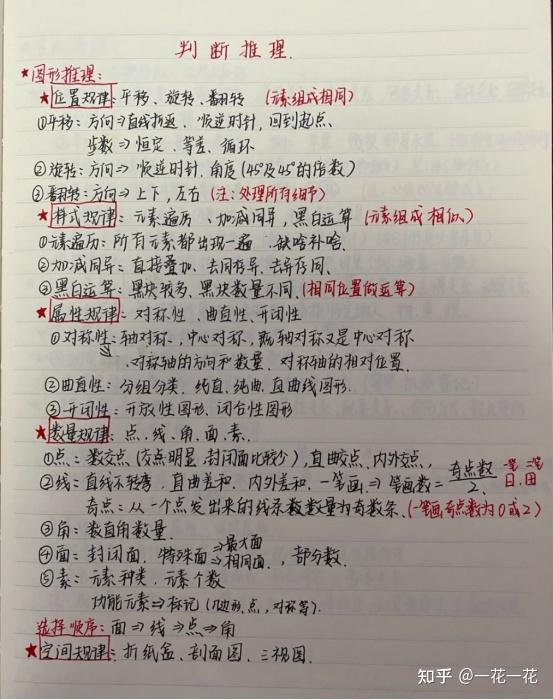 判断推理.
★图形推理:
★位置规律:平移、旋转、翻转 (元素组成相同)
①平移:方向⇒直线折返、顺逆时针,回到起点.
步数⇒恒定、等差、循环
②旋转:方向⇒顺逆时针、角度(45°及45°的倍数)
③翻转:方向⇒上下,左右(注:处理所有细节)
★样式规律:元素遍历、加减同异,黑白运算 (元素组成相似)
①元素遍历:所有元素都出现一遍、缺啥补啥.
②加减同异:直接叠加、去同存异、去异存同.
③黑白运算:黑块较多、黑块数量不同.(相同位置做运算)
★属性规律:对称性、曲直性、开闭性
①对称性:轴对称,中心对称,既轴对称又是中心对称
↳对称轴的方向和数量、对称轴的相对位置.
②曲直性:分组分类、纯直、纯曲、直曲线图形.
③开闭性:开放性图形、闭合性图形
★数量规律:点、线、角、面、素.
①点:数交点(交点明显、封闭面比较少),直曲交点、内外交点,
②线:直线不转弯,直曲差和、内外差和、一笔画⇒笔画数=奇点数/2、一笔 二笔 日、田
奇点:从一个点发出来的线条数数量为奇数条.(一笔画奇点数为0或2)
③角:数直角数量.
④面:封闭面、特殊面⇒最大面 ⇒相同面,部分数.
⑤素:元素种类、元素个数
功能元素⇒标记(几边形、点,对称等).
选择顺序:面⇒线⇒点⇒角
★空间规律:折纸盒、剖面图、三视图.
知乎 @一花一花